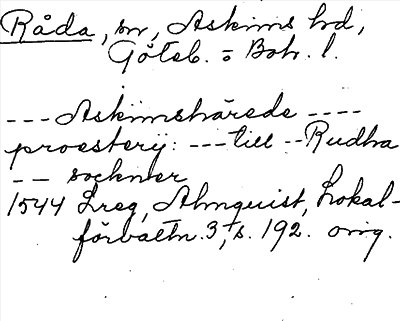 Råda, sn, Askims hd,
Göteb. o Boh. l.
--- Askimshärede ----
proesterij: --- till -- Rudha
-- sockner
1544 Lreg, Almquist, Lokal-
förvaltn. 3, s. 192. orig.